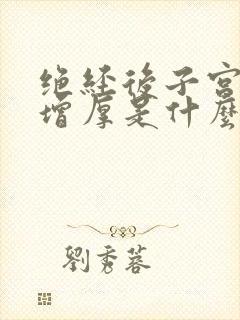 绝经後子宫
增厚是什麼
劉秀蓉